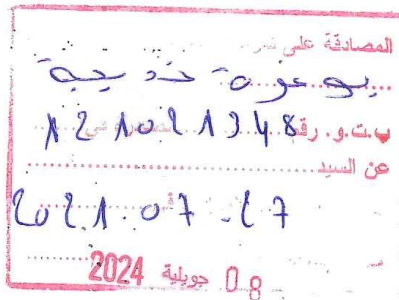 المصادقة على
بوعزة خديجة
ب.ت.و. رقم 121021348
عن السيد
2021.07.27
08 جويلية 2024